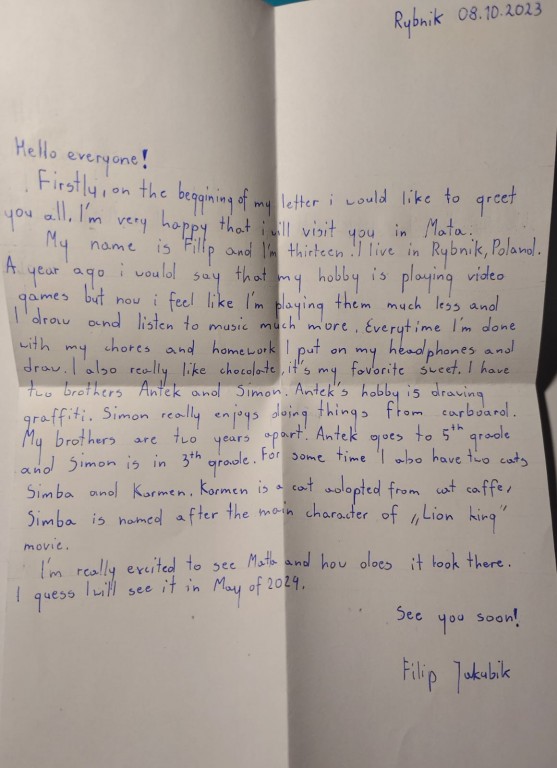 Rybnik 08.10.2023
Hello everyone!
Firstly, on the beggining of my letter i would like to greet
you all. I'm very happy that i will visit you in Malta.
My name is Filip and I'm thirteen. I live in Rybnik, Poland.
A year ago i would say that my hobby is playing video
games but now i feel like I'm playing them much less and
I draw and listen to music much more. Everytime I'm done
with my chores and homework I put on my headphones and
draw. I also really like chocolate, it's my favorite sweet. I have
two brothers Antek and Simon. Antek's hobby is drawing
graffiti. Simon really enjoys doing things from carboard.
My brothers are two years apart. Antek goes to 5th grade
and Simon is in 3th grade. For some time I also have two cats
Simba and Karmen. Karmen is a cat adopted from cat caffe,
Simba is named after the main character of „Lion king"
movie.
I'm really excited to see Malta and how does it look there.
I guess I will see it in May of 2024.
See you soon!
Filip Jakubik